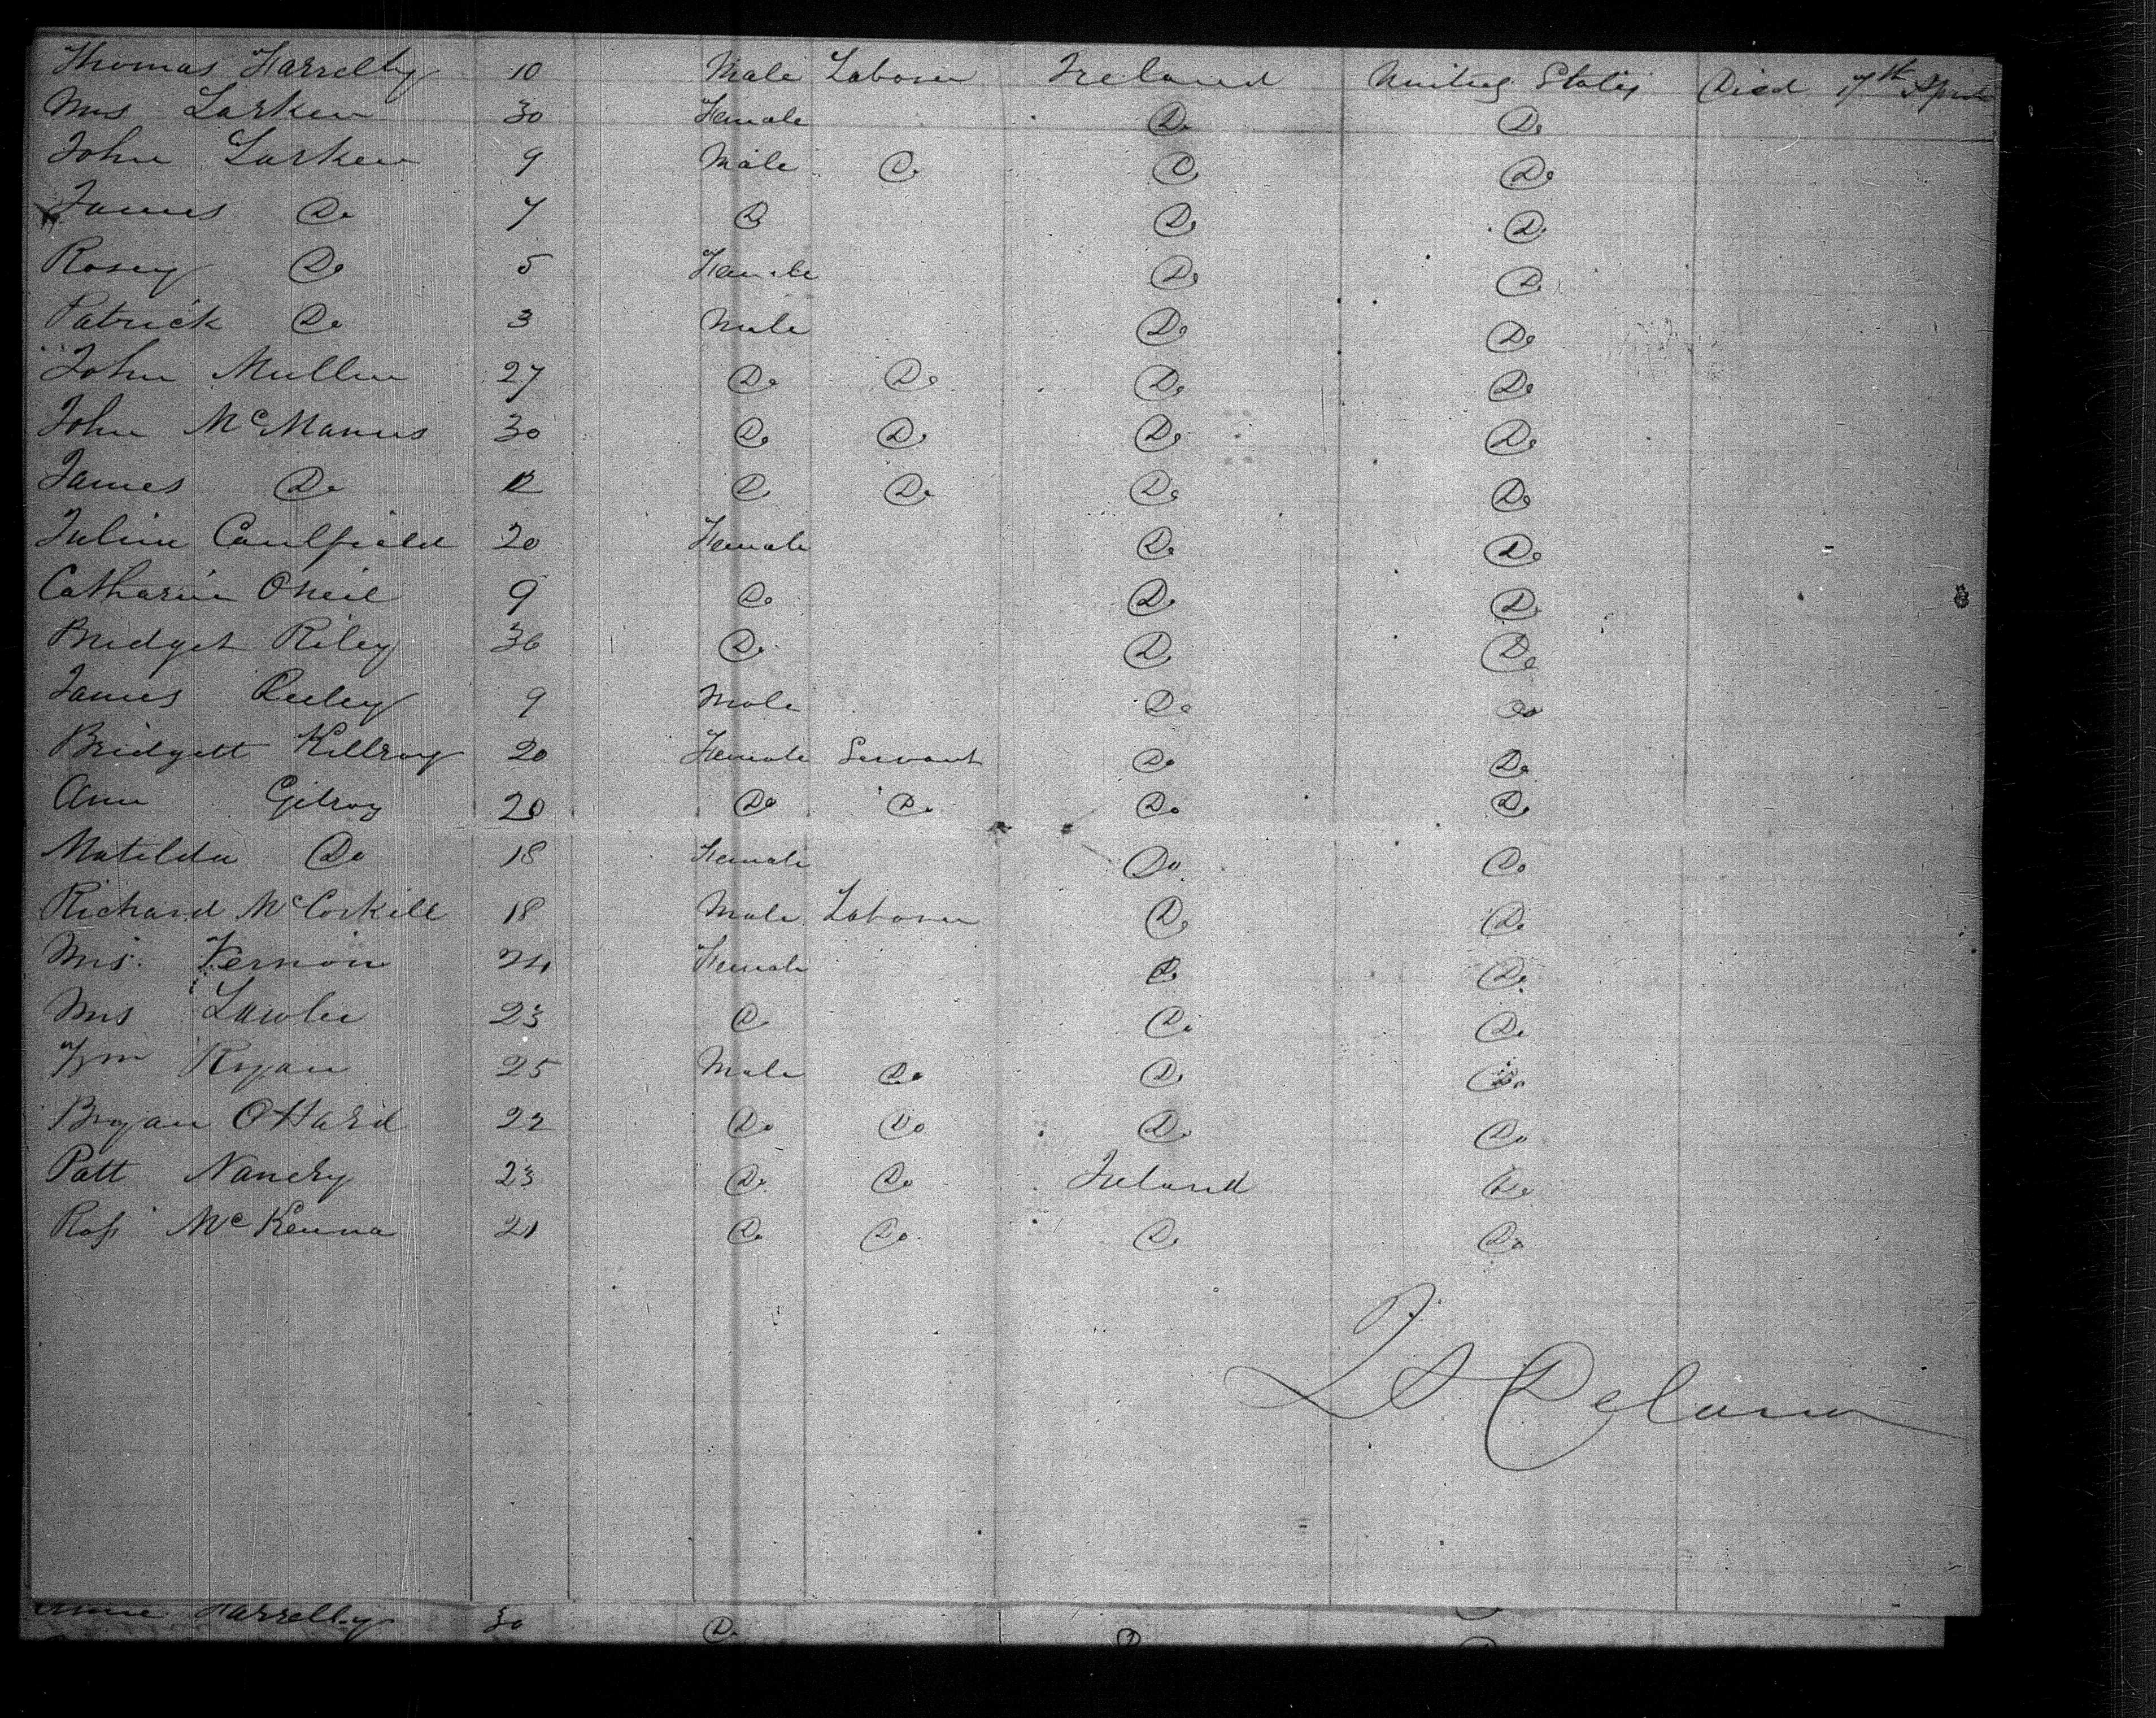 Thomas Farrelly 10 Male Laborer Ireland United States Died 17th April
Mrs Larken 30 Female Do Do
John Larken 9 Male Do Do Do
James Do 7 Do Do Do
Rosey Do 5 Female Do Do
Patrick Do 3 Male Do Do
John Mullen 27 Do Do Do Do
John McManus 30 Do Do Do Do
James Do 12 Do Do Do Do
Julia Caulfield 20 Female Do Do
Catharin Oneil 9 Do Do Do
Bridget Riley 36 Do Do Do
James Reiley 9 Male Do Do
Bridgett Killroy 20 Female Servant Do Do
Ann Gilroy 20 Do Do Do Do
Matilda Do 18 Female Do Do
Richard McCorkill 18 Male Laborer Do Do
Mrs. Vernon 24 Female Do Do
Mrs Lawler 23 Do Do Do
Wm Ryan 25 Male Do Do Do
Bryan OHard 22 Do Do Do Do
Patt 23 Do Do Ireland Do
Ross McKenna 21 Do Do Do Do
Delano
Farrelly 30 Do